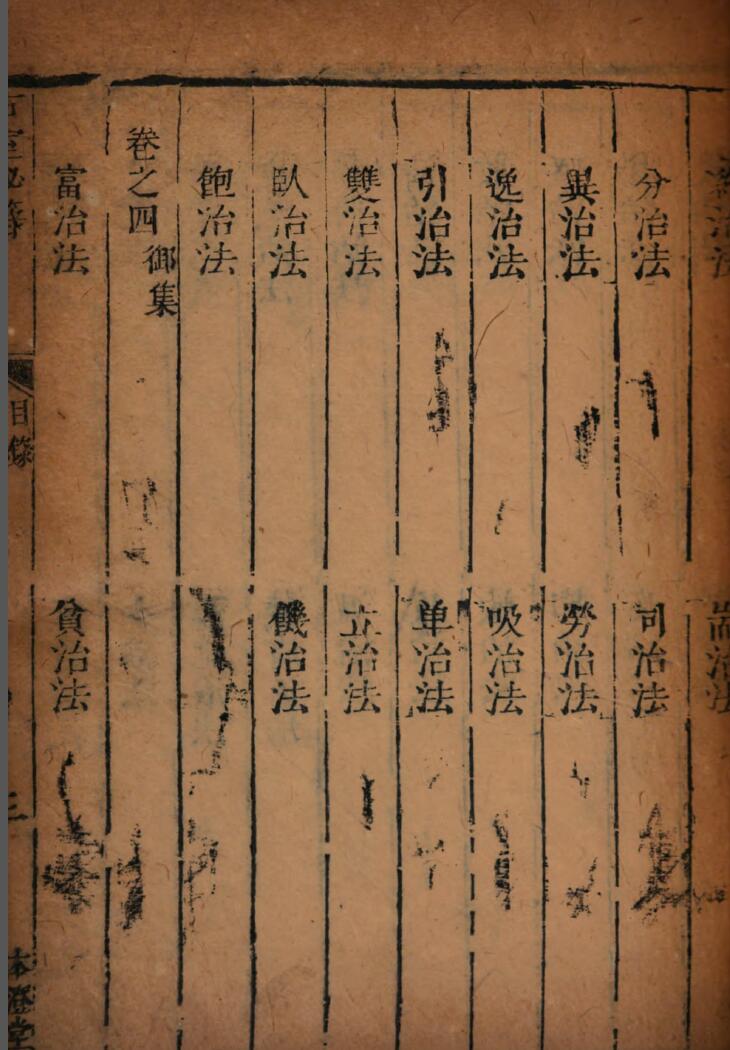 治法
治法
分治法
同治法
異治法
勞治法
逸治法
吸治法
引治法
单治法
雙治法
立治法
臥治法
饑治法
飽治法
卷之四 御集
富治法
貧治法
室秘籙
目錄
三
本澄堂